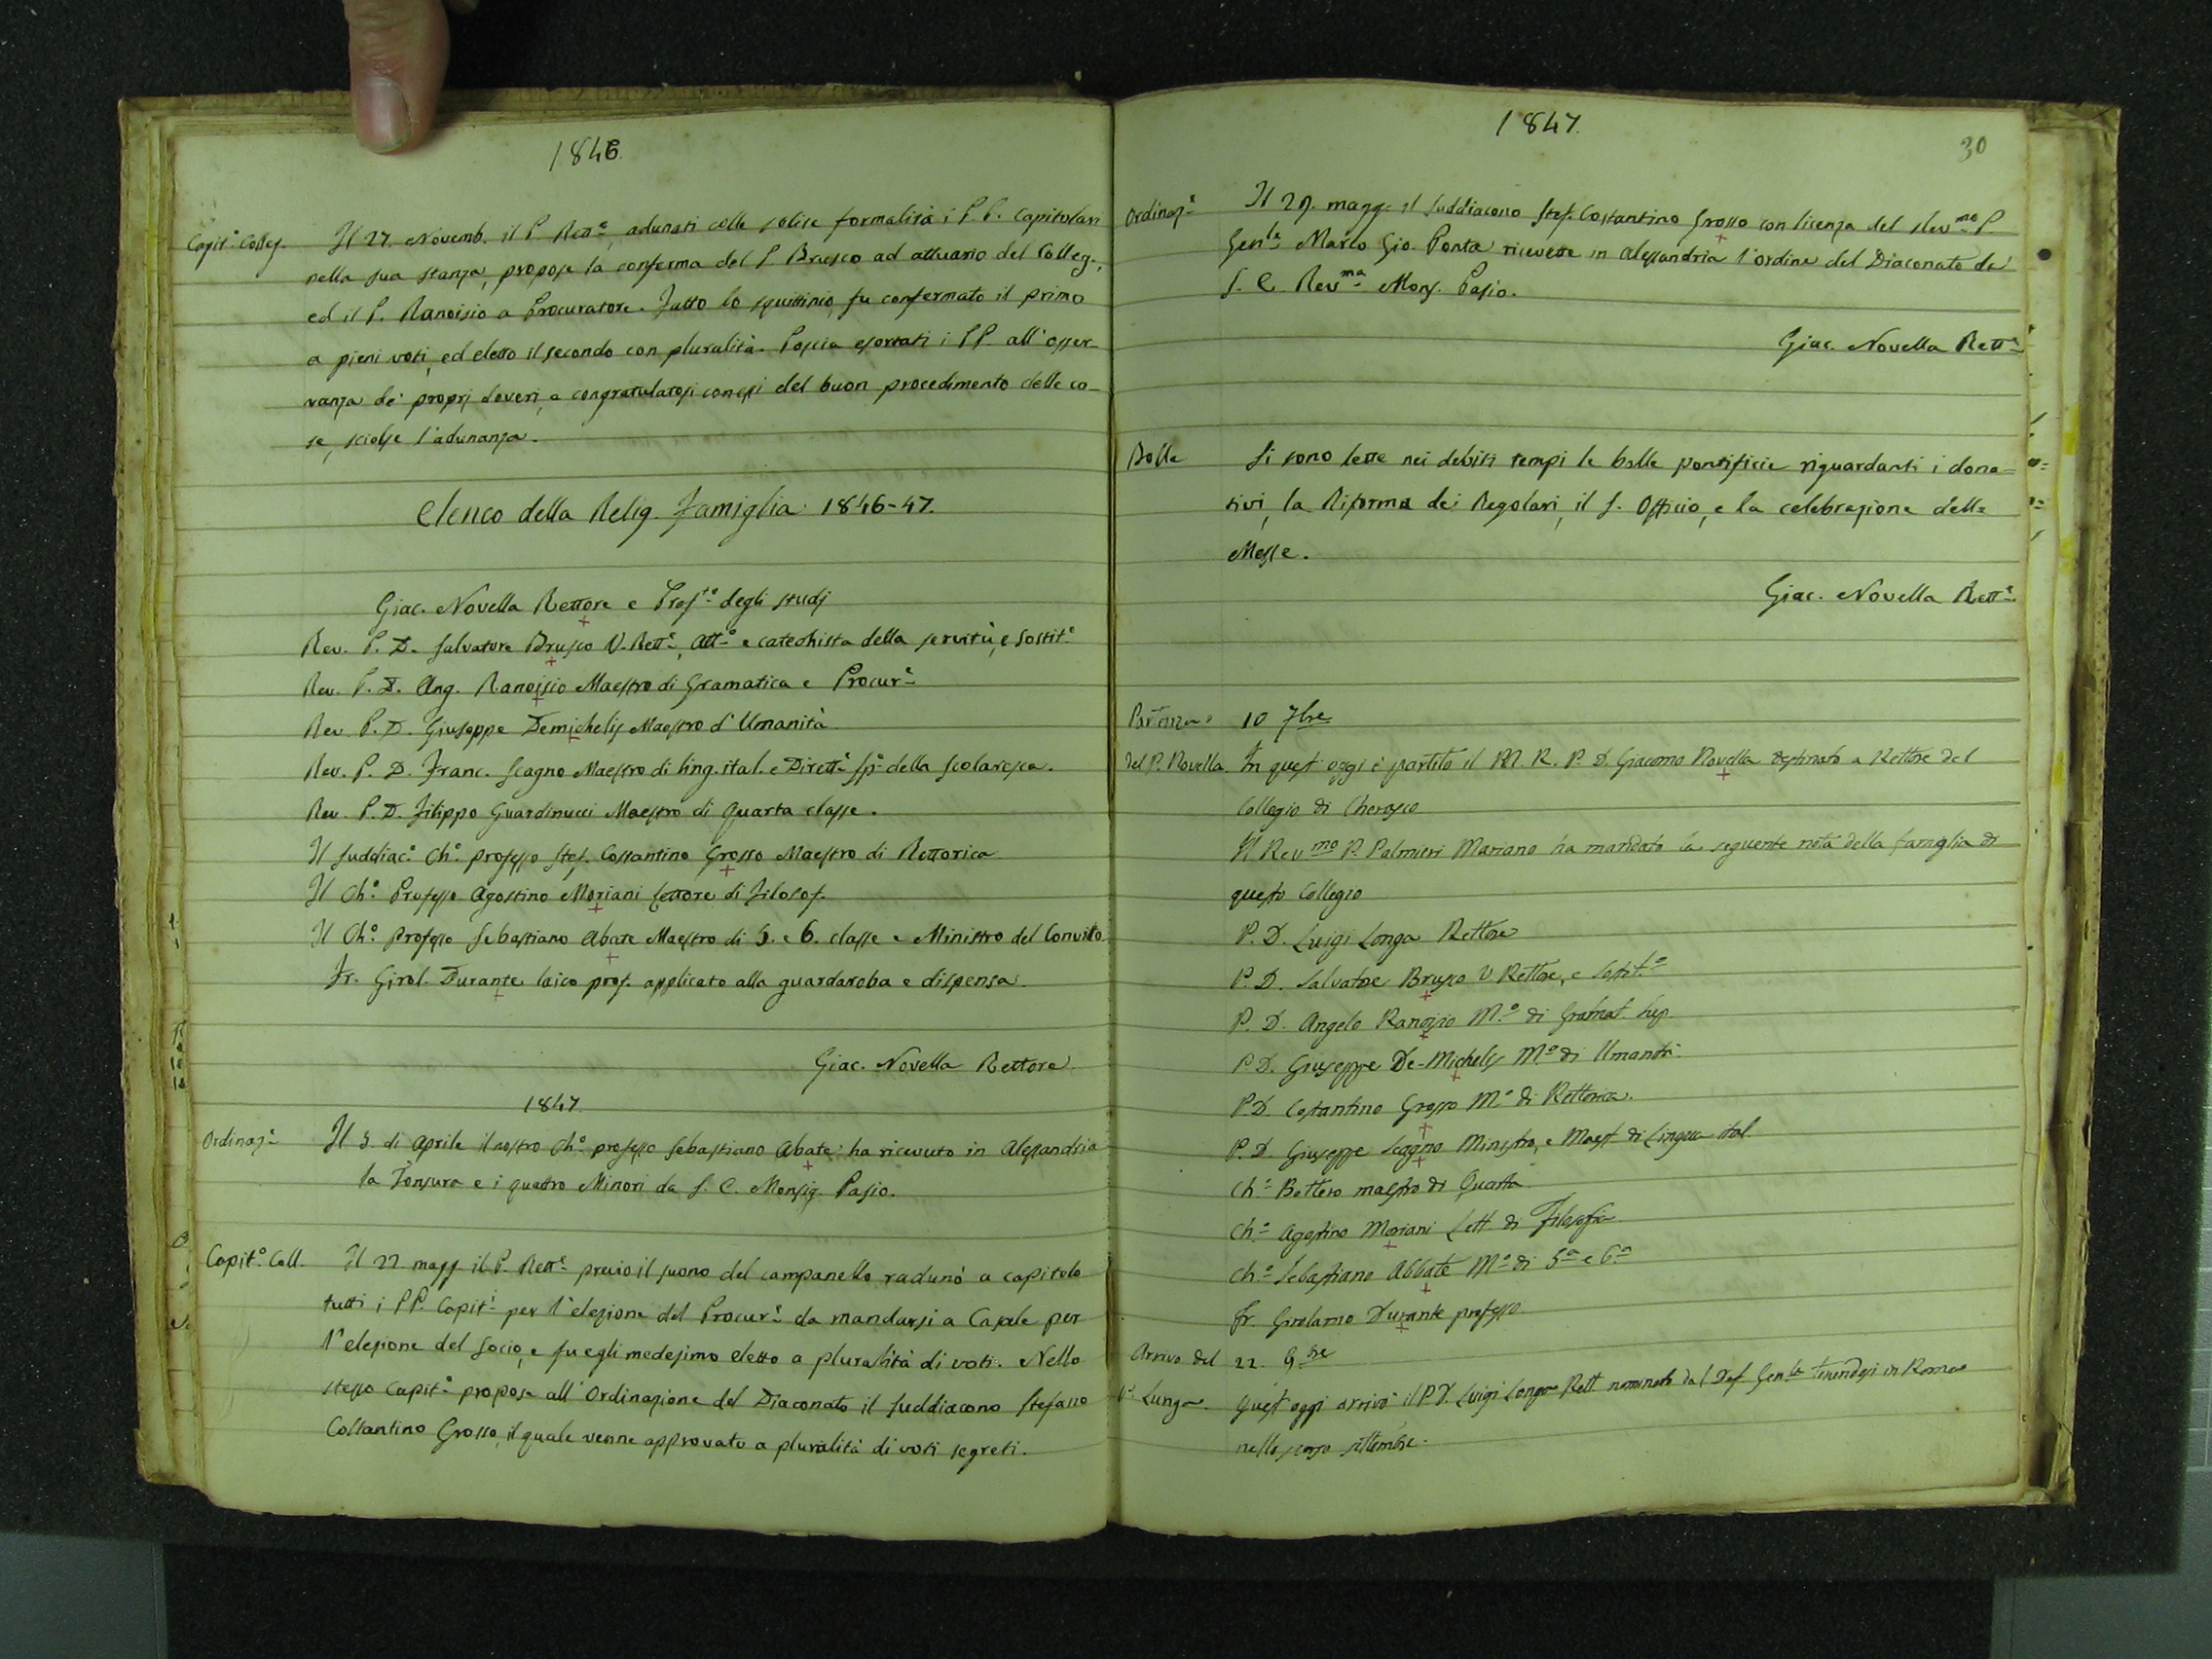 1846.
Capit.º Colleg. Il 27. Novemb. il P. Rettᵉ, adunati colle solite formalità i P.P. Capitolari
nella sua stanza, propose la conferma del P. Brusco ad attuario del Colleg.,
ed il P. Ranoisio a Procuratore. Fatto lo squittinio, fu confermato il primo
a pieni voti, ed eletto il secondo con pluralità. Poscia esortati i PP. all'osser-
vanza de' proprj doveri, e congratulatosi con essi del buon procedimento delle co-
se, sciolse l'adunanza.
Elenco della Relig. Famiglia 1846-47.
Giac. Novella Rettore e Pref.ᵗᵒ degli studj
Rev. P. D. Salvatore Brusco V. Rettᵉ, Att.º e catechista della servitù, e Sostit.º
Rev. P. D. Ang. Ranoisio Maestro di Gramatica e Procur.ᵉ
Rev. P. D. Giuseppe Demichelis Maestro d'Umanità
Rev. P. D. Franc. Scagno Maestro di ling. ital. e Dirett.ᵉ Sp.ᵉ della scolaresca.
Rev. P. D. Filippo Guardinucci Maestro di quarta classe.
Il suddiac.º Ch.º professo Stef. Costantino Grosso Maestro di Rettorica
Il Ch.º Professo Agostino Moriani Lettore di Filosof.
Il Ch.º professo Sebastiano Abate Maestro di 5. e 6. classe e Ministro del Convitto
Fr. Girol. Durante laico prof. applicato alla guardaroba e dispensa.
Giac. Novella Rettore
1847
Ordinaz.ᵉ Il 5 di Aprile il nostro Ch.º professo Sebastiano Abate ha ricevuto in Alessandria
la Tonsura e i quattro Minori da S. E. Monsig. Pasio.
Capit.º Coll. Il 22 magg. il P. Rett.ᵉ previo il suono del campanello radunò a capitolo
tutti i PP. Capit.ⁱ per l'elezione del Procur.ᵉ da mandarsi a Casale per
l'elezione del Socio, e fu egli medesimo eletto a pluralità di voti. Nello
stesso Capit.º propose all'Ordinazione del Diaconato il suddiacono Stefano
Costantino Grosso, il quale venne approvato a pluralità di voti segreti.
1847.
30
Ordinaz.ᵉ Il 29. magg. il suddiacono Stef. Costantino Grosso con licenza del Rev.ᵐᵒ P.
Gen.ˡᵉ Marco Gio. Ponta ricevette in Alessandria l'ordine del Diaconato da
S. E. Rev.ᵐᵃ Mons. Pasio.
Giac. Novella Rett.ᵉ
Bolle Si sono lette nei debiti tempi le bolle pontificie riguardanti i dona=
tivi, la Riforma dei Regolari, il S. Officio, e la celebrazione delle
Messe.
Giac. Novella Rett.ᵉ
Partenza 10 7bre
del P. Novella In quest'oggi è partito il M. R. P. D. Giacomo Novella destinato a Rettore del
Collegio di Cherasco
Il Rev.ᵐᵒ P. Palmieri Mariano ha mandato la seguente nota della famiglia di
questo Collegio
P. D. Luigi Longa Rettore
P. D. Salvatore Brusco V. Rettore, e Sostit.º
P. D. Angelo Ranoisio M.º di Gramat. sup.
P. D. Giuseppe De-Michelis M.º di Umanità
P. D. Costantino Grosso M.º di Rettorica.
P. D. Giuseppe Scagno Ministro, e Maest. di Lingua ital.
Ch.º Bottero maestro di Quarta
Ch.º Agostino Moriani Lett. di Filosofia
Ch.º Sebastiano Abbate M.º di 5ª e 6ª
Fr. Girolamo Durante professo.
Arrivo del 22. 9bre
P. Lunga. Quest'oggi arrivò il P. D. Luigi Longa Rett. nominato dal Def. Gen.ˡᵉ tenendosi in Roma
nello scorso settembre.